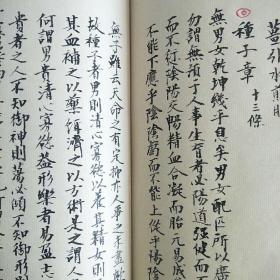 種子章 十三條
無男女乾坤幾乎息矣男女配匹所以
勿謂無預于人事生育者以陽道强健而
而不衍陰陽交暢精血合凝而胎元易成
不能下應乎陰陰虧而不能上從乎陽陰
無子雖云天命之有定抑亦人事之未盡
故種子者男則清心寡慾以養其精女則
其血補之以藥餌濟之以方術是之謂人
何謂男貴清心寡慾蓋形樂者易盈志
貴者之人不知御神則蕩必傾不知御形